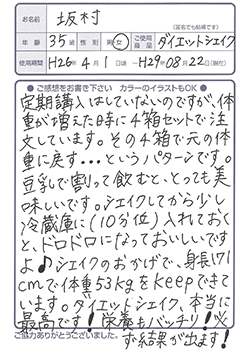 お名前 坂村
(匿名でも結構です)
年齢 35歳 性別 男・女 ご使用商品 ダイエットシェイク
使用期間 H26年4月1日頃 ～H29年08月22日(現在)
●ご感想をお書き下さい カラーのイラストもOK●
定期購入はしていないのですが、体
重が増えた時に4箱セットで注
文しています。その4箱で元の体
重に戻す...というパターンです。
豆乳で割って飲むと、とっても美
味しいです。シェイクしてから少し
冷蔵庫に(10分位)入れておく
と、ドロドロになっておいしいです
よ♪シェイクのおかげで、身長171
cmで体重53kgをkeepできて
います。ダイエットシェイク、本当に
最高です!栄養もバッチリ!必
ず結果が出ます!
ご協力ありがとうございました。